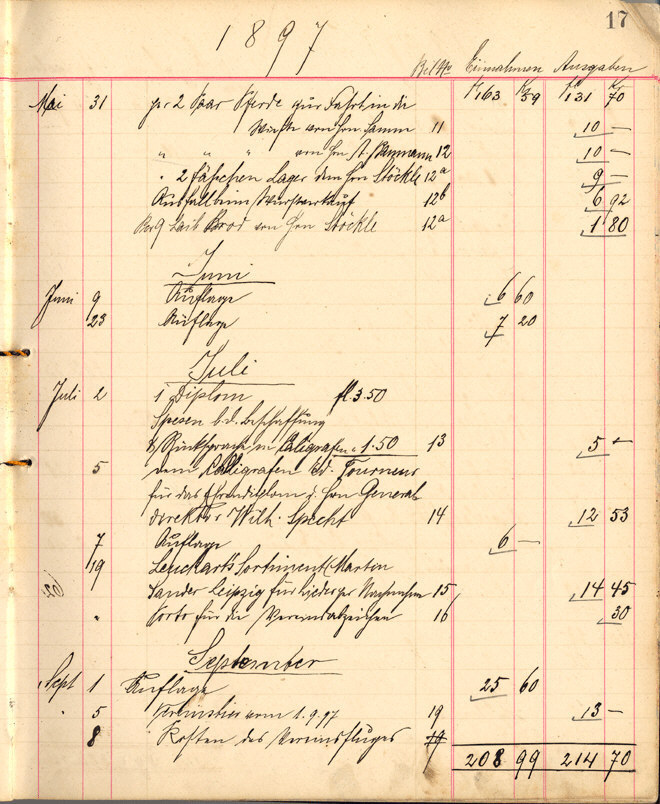 17
1897
Bel No Einnahmen Ausgaben
Mai 31 per 2 Paar Pferde zur Fahrt in die 163 59 131 70
von Hrn 11 10 —
" " " von Hrn 12 10 —
" 2 Fäßchen Lager dem Hrn Stöckle 12a 9 —
Ausfall beim Wurstverkauf 12b 6 92
Per 9 Laib Brod von Hrn Stöckle 12a 1 80
Juni
Juni 9 Auflage 6 60
23 Auflage 7 20
Juli
Juli 2 1 Diplom fl 3.50
Spesen b. d. Beschaffung
& Rücksprache m Kaligrafen " 1.50 13 5 —
5 dem Kalligrafen Ed. Fourneur
für das Ehrendiplom f. Hrn General
direktor Wilh. Specht 14 12 53
7 Auflage 6 —
19 Leuckart's Sortiment (Marten
Sander Leipzig für Nachnahme 15 14 45
" Porto für die Vereinsabzeichen 16 30
September
Sept 1 Auflage 25 60
" 5 vom 1.9.97 19 13 —
8 Kosten des Vereinsfluges 19
208 99 214 70